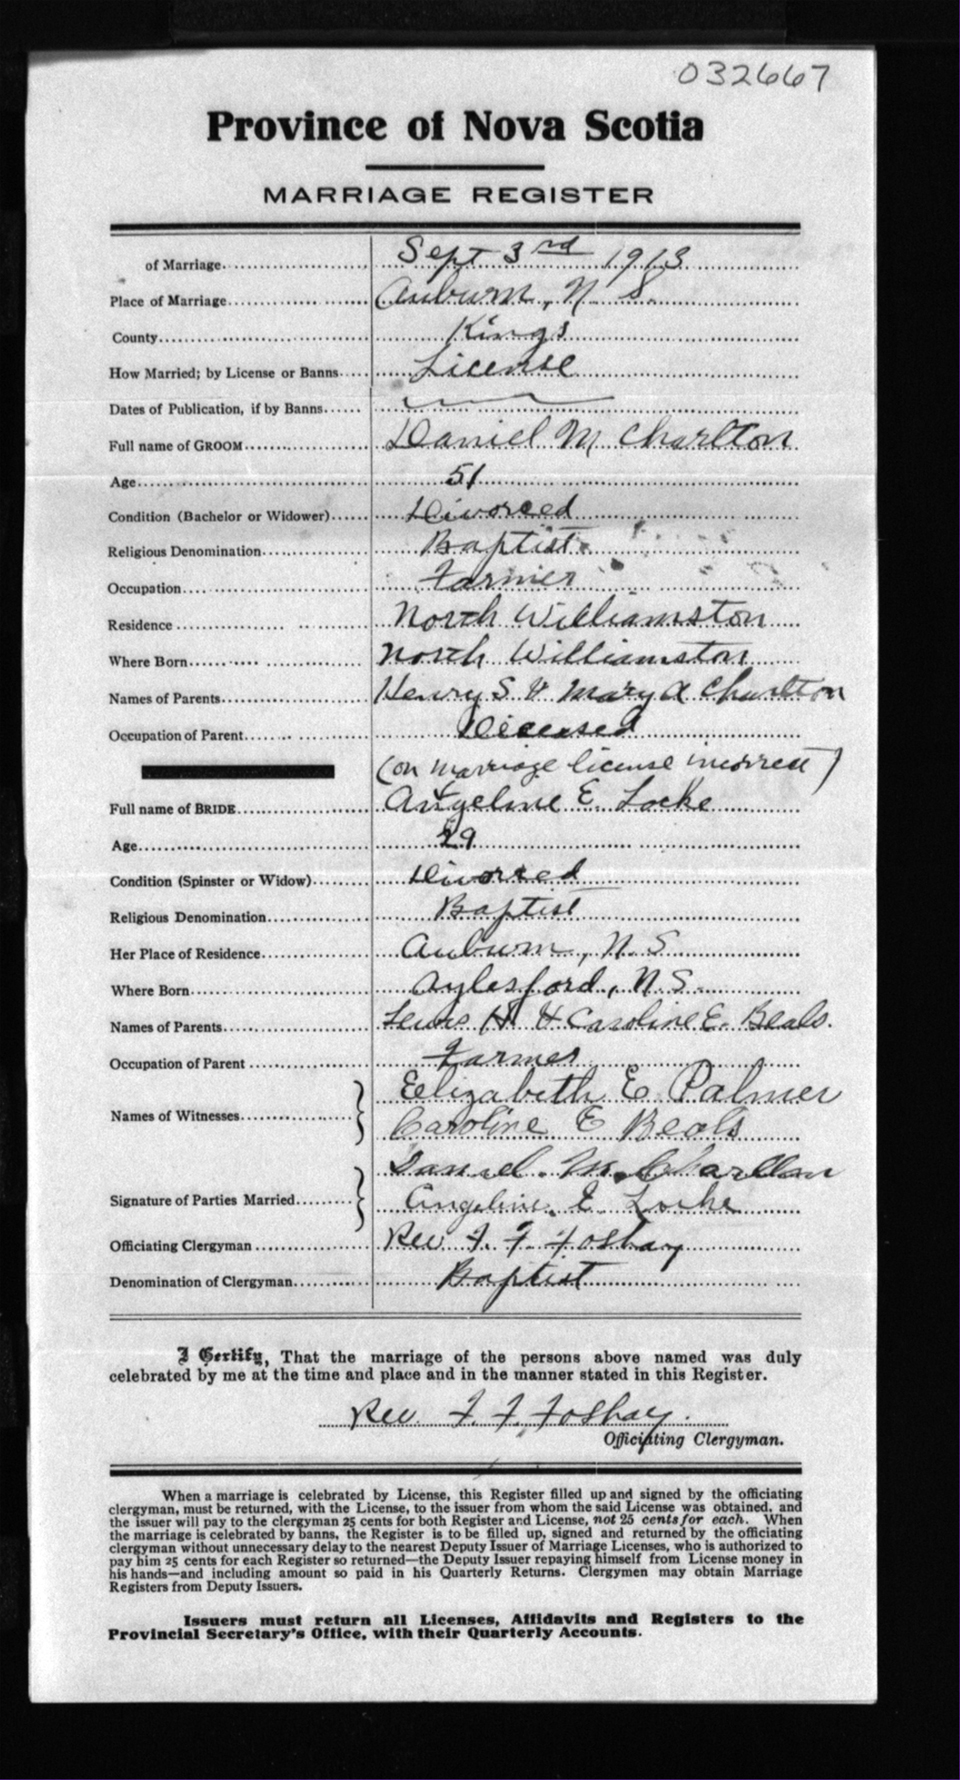 032667
Province of Nova Scotia
MARRIAGE REGISTER
of Marriage Sept 3rd 1913
Place of Marriage Auburn, N. S.
County Kings
How Married; by License or Banns License
Dates of Publication, if by Banns
Full name of GROOM Daniel M Charlton
Age 51
Condition (Bachelor or Widower) Divorced
Religious Denomination Baptist
Occupation Farmer
Residence North Williamston
Where Born North Williamston
Names of Parents Henry S & Mary A Charlton
Occupation of Parent Diceased
(on marriage license incorrect)
Full name of BRIDE Angeline E. Locke
Age 29
Condition (Spinster or Widow) Divorced
Religious Denomination Baptist
Her Place of Residence Auburn, N. S
Where Born Aylesford, N. S.
Names of Parents Lewis H & Caroline E. Beals.
Occupation of Parent Farmer
Names of Witnesses Elizabeth E Palmer
Caroline E Beals
Signature of Parties Married Daniel. M. Charlton
Angeline. E Locke
Officiating Clergyman Rev F. F. Foshay
Denomination of Clergyman Baptist
I Certify, That the marriage of the persons above named was duly
celebrated by me at the time and place and in the manner stated in this Register.
Rev F. F. Foshay.
Officiating Clergyman.
When a marriage is celebrated by License, this Register filled up and signed by the officiating
clergyman, must be returned, with the License, to the issuer from whom the said License was obtained, and
the issuer will pay to the clergyman 25 cents for both Register and License, not 25 cents for each. When
the marriage is celebrated by banns, the Register is to be filled up, signed and returned by the officiating
clergyman without unnecessary delay to the nearest Deputy Issuer of Marriage Licenses, who is authorized to
pay him 25 cents for each Register so returned—the Deputy Issuer repaying himself from License money in
his hands—and including amount so paid in his Quarterly Returns. Clergymen may obtain Marriage
Registers from Deputy Issuers.
Issuers must return all Licenses, Affidavits and Registers to the
Provincial Secretary's Office, with their Quarterly Accounts.